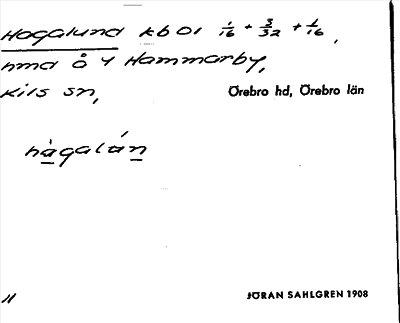 Hagalund kbol 1/16 + 3/32 + 1/16,
hmd å 4 Hammarby,
Kils sn,
Örebro hd, Örebro län
hàgalán
11
JÖRAN SAHLGREN 1908